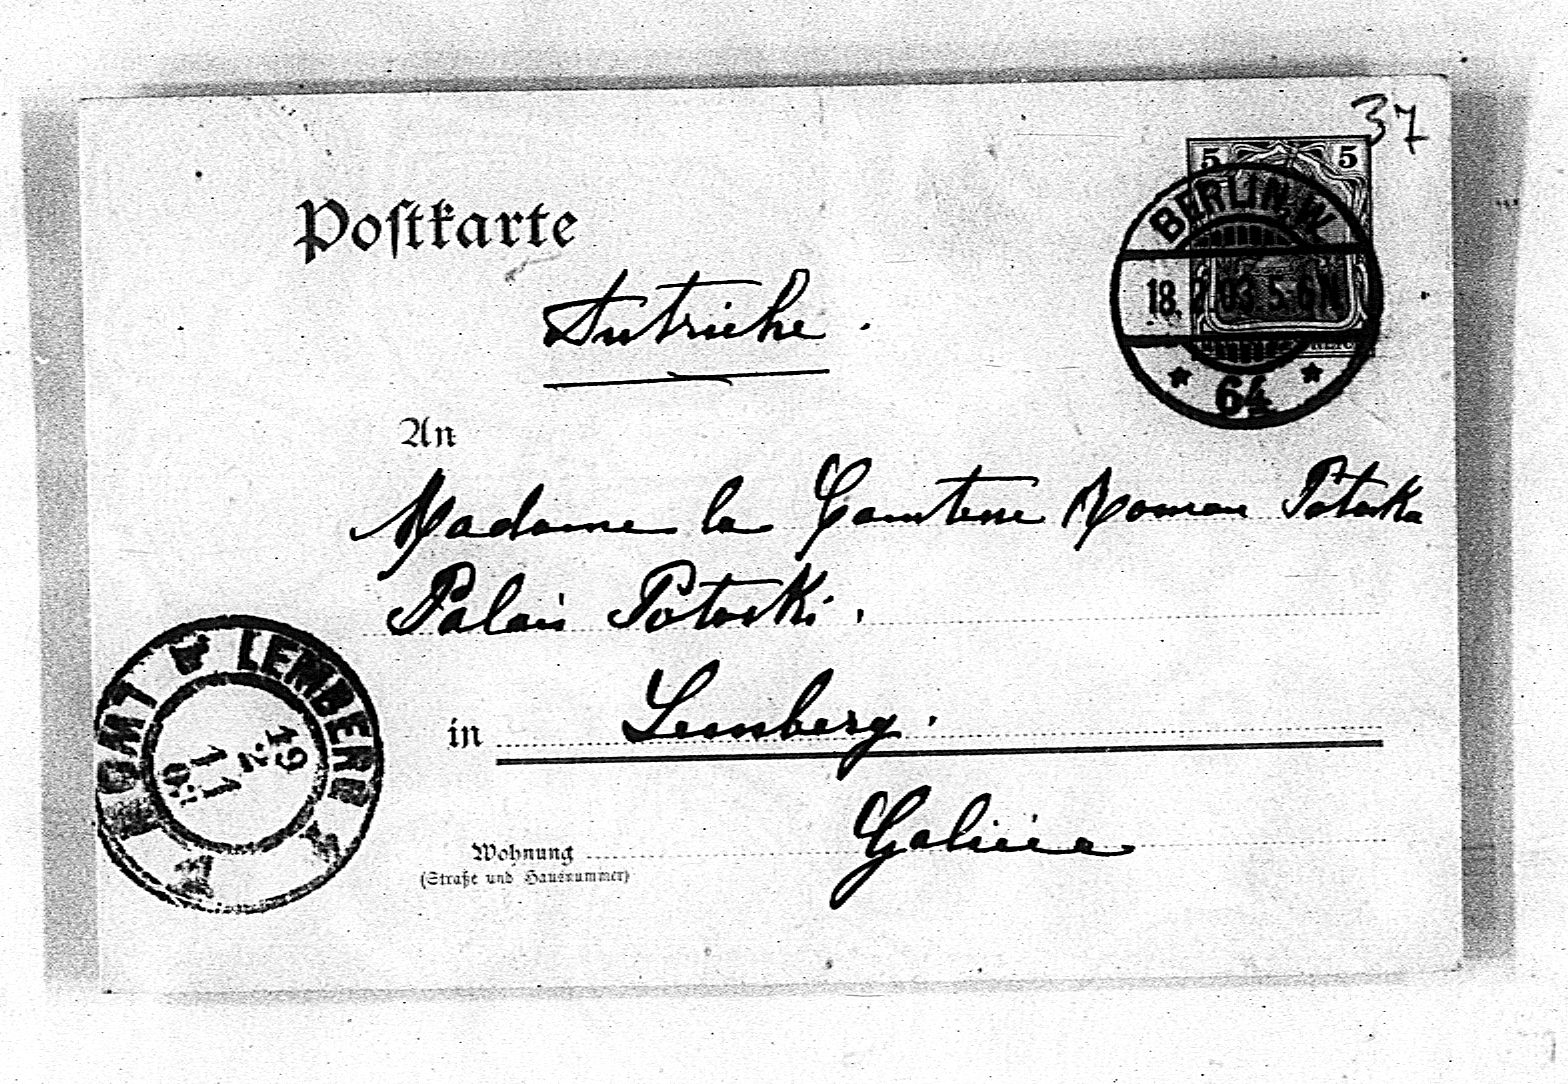 37
5 5
Postkarte
BERLIN. W.
18. 2. 03. 5-6 N.
* 64 *
Autriche.
An
Madame la Comtesse Roman Potocka
Palais Potocki.
LEMBERG
19
2
11
in Lemberg.
Galicie
Wohnung
(Straße und Hausnummer)